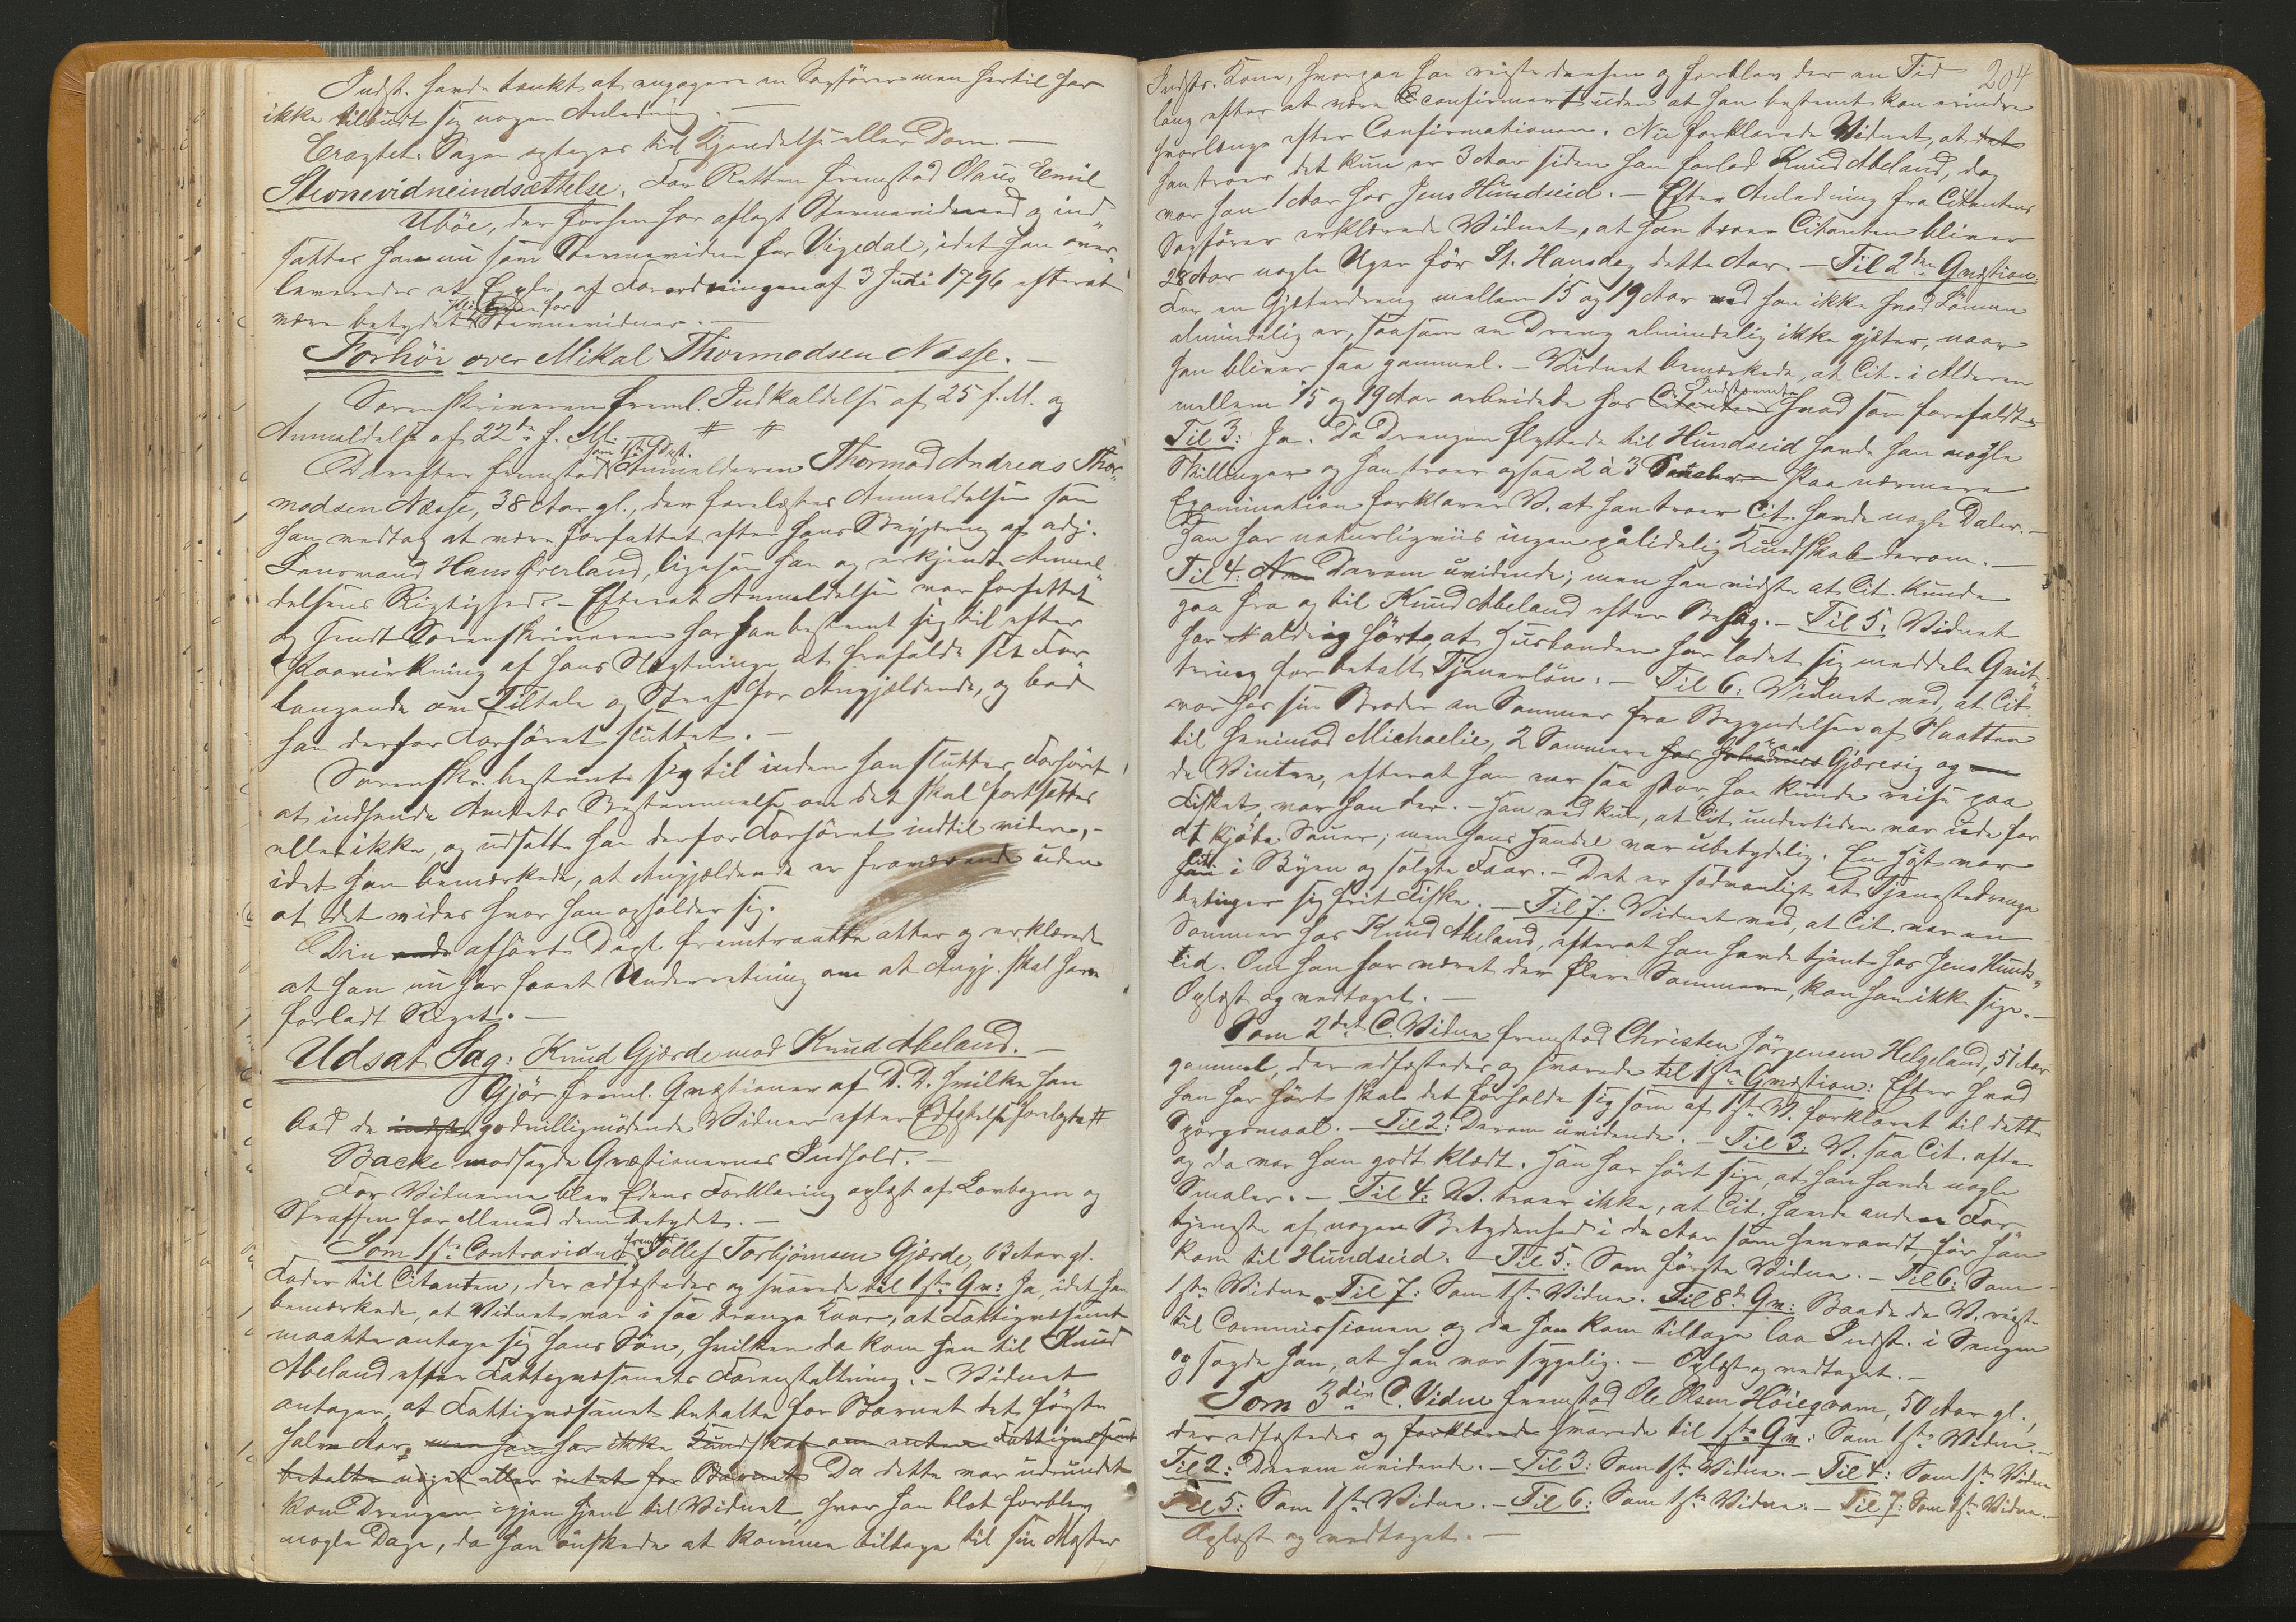 Indst. havde tænkt at engagere en Sagförer men hertil har
ikke tilbudt sig nogen Anledning. —
Eragtet: Sagen optages til Kjendelse eller Dom. —
Stevnevidneindsættelse. For Retten fremstod Olaus Emil
Uböe, der forhen har aflagt Stevnevidneed og ind-
sattes han nu som Stevnevidne for Vigedal, idet han over-
leveredes et Explr. af Forordningen af 3 Juni 1796 efterat
være betydet Pligterne for Stevnevidner. —
Forhör over Mikal Thormodsen Næsse. —
Sorenskriveren freml. Indkaldelse af 25 f. M. og
Anmeldelse af 22de f. M. — # #
Derefter fremstod som 1ste Dept. Anmelderen Thormod Andreas Thor-
modsen Næsse, 38 Aar gl., der forelæstes Anmeldelsen som
han vedtog at være forfattet efter hans Begjering af adj.
Lensmand Hans Överland, ligesom han og erkjendte Anmel-
delsens Rigtighed. — Efterat Anmeldelsen var forfattet
og sendt Sorenskriveren har han bestemt sig til efter
Paavirkning af hans Slægtninge at frafalde sit For-
langende om Tiltale og Straf for Angjældende, og bad
han derfor Forhöret sluttet. —
Sorenskr. bestemte sig til inden han slutter Forhöret,
at indhente Amtets Bestemmelse om det skal fortsættes
eller ikke, og udsatte han derfor Forhöret indtil videre, —
idet han bemærkede, at Angjældende er fraværende uden
at det vides hvor han opholder sig.
Den ende afhörte Dept. fremtraadte atter og erklærede
at han nu har faaet Underretning om at Angj. skal have
forladt Riget. —
Udsat Sag: Knud Gjærde mod Knud Abeland. —
Gjör freml. Qvæstioner af D. D. hvilke han
bad de indste godvilligmödende Vidner efter Edfæstelse forelagte #
Backe modsagde Qvæstionernes Indhold. —
For Vidnerne blev Edens Forklaring oplæst af Lovbogen og
Straffen for Meened dem betydet. —
Som 1ste Contravidne fremstod Tollef Torbjörnsen Gjærde, 63 Aar gl.
Fader til Citanten, der edfæstedes og svarede til 1ste Qv: Ja, idet han
bemærkede, at Vidnet var i saa trange Kaar, at Fattigvæsenet
maatte antage sig hans Sön, hvilken da kom hen til Knud
Abeland efter Fattigvæsenets Foranstaltning. — Vidnet
antager, at Fattigvæsenet betalte for Barnet det förste
halve Aar, men han har ikke Kundskab om enten Fattigvæsenet
betalte noget eller intet for Barnet. Da dette var udrundet
kom Drengen igjen hjem til Vidnet, hvor han blot forblev
nogle Dage, da han önskede at komme tilbage til sin Moster
204
Indstr. Kone, hvorpaa han reiste derhen og forblev der en Tid
lang efter at være confirmert uden at han bestemt kan erindre
hvorlænge efter Confirmationen. Nu forklarede Vidnet, at det
han troer det kun er 3 Aar siden han forlod Knud Abeland, dog
var han 1 Aar hos Jens Hundseid. — Efter Anledning fra Citantens
Sagförer erklærede Vidnet, at han troer Citanten bliver
28 Aar nogle Uger för St. Hansdag dette Aar. — Til 2den Qvæstion
For en Gjæterdreng mellem 15 og 19 Aar ved han ikke hvad Lönnen
almindelig er, saasom en Dreng almindelig ikke gjæter, naar
han bliver saa gammel. — Vidnet bemærkede, at Cit. i Alderen
mellem 15 og 19 Aar arbeidede hos Citanten Indstevnte hvad som forefaldt. —
Til 3: Ja. Da Drengen flyttede til Hundseid havde han nogle
Skillinger og han troer ogsaa 2 à 3 Sauer. Paa nærmere
Examination forklarer V. at han troer Cit. havde nogle Daler. —
Han har naturligviis ingen palidelig Kundskab derom. —
Til 4: Derom uvidende; men han vidste at Cit. kunde
gaa fra og til Knud Abeland efter Behag. — Til 5: Vidnet
har aldrig hört, at Husbonden har ladet sig meddele Qvit-
tering for betalt Tjenerlön. — Til 6: Vidnet ved, at Cit.
var hos sin Broder en Sommer fra Begyndelsen af Slaatten
til henimod Michaelie, 2 Sommere hos Johannes paa Gjærevig og
de Vintre, efterat han var saa stor, han kunde reise paa
Fisket, var han der. — Han ved kun, at Cit. undertiden var ude for
at kjöbe Sauer; men hans Handel var ubetydelig. En Höst var
Cit. i Byen og solgte Faar. — Det er sædvanligt at Tjenestedrenge
betinger sig frit Fiske. — Til 7: Vidnet ved, at Cit. var en
Sommer hos Knud Abeland, efterat han havde tjent hos Jens Hunds-
eid. Om han har været der flere Sommere, kan han ikke sige. —
Oplæst og vedtaget. —
Som 2det C. Vidne fremstod Christen Jörgensen Helgeland, 51 Aar
gammel, der edfæstedes og svarede til 1ste Qvæstion: Efter hvad
han har hört skal det forholde sig som af 1ste V. forklaret til dette
Spörgsmaal. — Til 2: Derom uvidende. — Til 3: V. saa Cit. ofte
og da var han godt klædt. Han har hört sige, at han havde nogle
Smaler. — Til 4: V. troer ikke, at Cit. havde anden For-
tjeneste af nogen Betydenhed i de Aar som henrandt, för han
kom til Hundseid. — Til 5: Som förste Vidne. — Til 6: Som
1ste Vidne. Til 7: Som 1ste Vidne. Til 8de Qv: Baade da V. reiste
til Commissionen og da han kom tilbage laa Indst. i Sengen
og sagde han, at han var sygelig. — Oplæst og vedtaget. —
Som 3die C. Vidne fremstod Ole Olsen Höiegvam, 50 Aar gl.,
der edfæstedes og forklarede svarede til 1ste Qv: Som 1ste Vidne. —
Til 2: Derom uvidende. — Til 3: Som 1ste Vidne. — Til 4: Som 1ste Vidne
Til 5: Som 1ste Vidne. — Til 6: Som 1ste Vidne. — Til 7: Som 1ste Vidne. —
Oplæst og vedtaget. —